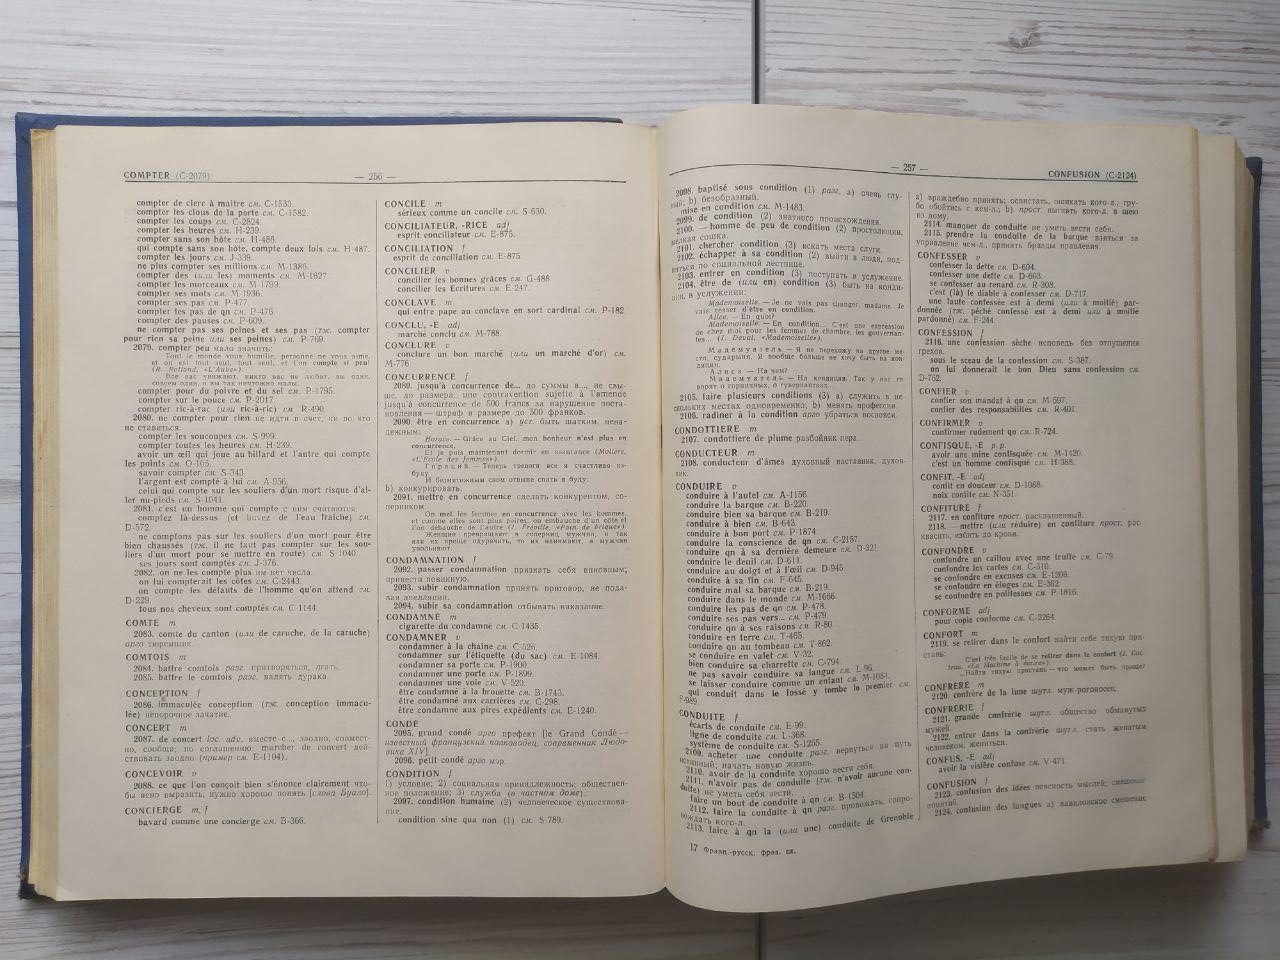 COMPTER (C-2079)
— 256 —
compter de clerc à maître см. C-1533.
compter les clous de la porte см. C-1582.
compter les coups см. C-2824.
compter les heures см. H-239.
compter sans son hôte см. H-486.
qui compte sans son hôte, compte deux fois см. H-487.
compter les jours см. J-339.
ne plus compter ses millions см. M-1386.
compter des (или les) moments см. M-1627
compter les morceaux см. M-1799.
compter ses mots см. M-1936.
compter ses pas см. P-477.
compter les pas de qn см. P-476
compter des pauses см. P-609.
ne pas compter ses peines et ses pas (тж. compter
pour rien sa peine или ses peines) см. P-769.
2079. compter peu мало значить:
Tout le monde vous humilie, personne ne vous aime,
et on est tout seul, tout seul, et l'on compte si peu
(R. Rolland, «L'Aube»).
Все вас унижают, никто вас не любит, вы один,
совсем один, и вы так ничтожно малы.
compter pour du poivre et du sel см. P-1795.
compter sur le pouce см. P-2017.
compter ric-à-rac (или ric-à-ric) см. R-490.
2080. ne compter pour rien не идти в счет, ни во что
не ставиться.
compter les soucoupes см. S-999.
compter toutes les heures см. H-239.
avoir un œil qui joue au billard et l'autre qui compte
les points см. O-105.
savoir compter см. S-343.
l'argent est compté à lui см. A-956.
celui qui compte sur les souliers d'un mort risque d'al-
ler nu-pieds см. S-1041.
2081. c'est un homme qui compte с ним считаются
comptez là-dessus (et buvez de l'eau fraîche) см.
D-572.
ne comptons pas sur les souliers d'un mort pour être
bien chaussés (тж. il ne faut pas compter sur les sou-
liers d'un mort pour se mettre en route) см. S-1040.
ses jours sont comptés см. J-376.
2082. on ne les compte plus им нет числа.
on lui compterait les côtes см. C-2443.
on compte les défauts de l'homme qu'on attend см.
D-229.
tous nos cheveux sont comptés см. C-1144.
COMTE m
2083. comte du canton (или de caruche, de la caruche)
арго тюремщик.
COMTOIS m
2084. battre comtois разг. притворяться, лгать.
2085. battre le comtois разг. валять дурака.
CONCEPTION f
2086. immaculée conception (тж. conception immacu-
lée) непорочное зачатие.
CONCERT m
2087. de concert loc. adv. вместе с..., заодно, совмест-
но, сообща; по соглашению; marcher de concert дей-
ствовать заодно (пример см. E-1104).
CONCEVOIR v
2088. ce que l'on conçoit bien s'énonce clairement что-
бы ясно выразить, нужно хорошо понять [слова Буало].
CONCIERGE m, f
bavard comme une concierge см. B-366.
CONCILE m
sérieux comme un concile см. S-630.
CONCILIATEUR, -RICE adj
esprit conciliateur см. E-875.
CONCILIATION f
esprit de conciliation см. E-875.
CONCILIER v
concilier les bonnes grâces см. G-488.
concilier les Écritures см. E-247.
CONCLAVE m
qui entre pape au conclave en sort cardinal см. P-182.
CONCLU, -E adj
marché conclu см. M-788.
CONCLURE v
conclure un bon marché (или un marché d'or) см.
M-776.
CONCURRENCE f
2089. jusqu'à concurrence de... до суммы в..., не свы-
ше, до размера: une contravention sujette à l'amende
jusqu'à concurrence de 500 francs за нарушение поста-
новления — штраф в размере до 500 франков.
2090. être en concurrence a) уст. быть шатким, нена-
дежным:
Horace. — Grâce au Ciel, mon bonheur n'est plus en
concurrence,
Et je puis maintenant dormir en assurance (Molière,
«L'École des femmes»).
Гораций. — Теперь тревоги все я счастливо из-
буду
И безмятежным сном отныне спать я буду.
b) конкурировать.
2091. mettre en concurrence сделать конкурентом, со-
перником:
On met les femmes en concurrence avec les hommes,
et comme elles sont plus poires, on embauche d'un côté et
l'on débauche de l'autre (J. Fréville, «Pain de brique»).
Женщин превращают в соперниц мужчин, а так
как их проще одурачить, то их нанимают, а мужчин
увольняют.
CONDAMNATION f
2092. passer condamnation признать себя виновным;
принести повинную.
2093. subir condamnation принять приговор, не пода-
вая апелляции.
2094. subir sa condamnation отбывать наказание.
CONDAMNÉ m
cigarette du condamné см. C-1435.
CONDAMNER v
condamner à la chaîne см. C-526
condamner sur l'étiquette (du sac) см. E-1084.
condamner sa porte см. P-1900
condamner une porte см. P-1899.
condamner une voie см. V-520.
être condamné à la brouette см. B-1743.
être condamné aux carrières см. C-298.
être condamné aux pires expédients см. E-1240.
CONDÉ
2095. grand condé арго префект [le Grand Condé —
известный французский полководец, современник Людо-
вика XIV].
2096. petit condé арго мэр.
CONDITION f
1) условие; 2) социальная принадлежность; обществен-
ное положение; 3) служба (в частном доме).
2097. condition humaine (2) человеческое существова-
ние.
condition sine qua non (1) см. S-789.
— 257 —
CONFUSION (C-2124)
2098. baptisé sous condition (1) разг. a) очень глу-
пый; b) безобразный.
mise en condition см. M-1483.
2099. de condition (2) знатного происхождения.
2100. — homme de peu de condition (2) простолюдин,
мелкая сошка.
2101. chercher condition (3) искать места слуги.
2102. échapper à sa condition (2) выйти в люди, под-
няться по социальной лестнице.
2103. entrer en condition (3) поступать в услужение.
2104. être de (или en) condition (3) быть на конди-
ции, в услужении:
Mademoiselle. — Je ne vais pas changer, madame. Je
vais cesser d'être en condition.
Alice. — En quoi?
Mademoiselle. — En condition... C'est une expression
de chez moi pour les femmes de chambre, les gouvernan-
tes... (J. Deval, «Mademoiselle»).
Мадемуазель. — Я не перехожу на другое ме-
сто, сударыня. Я вообще больше не хочу быть на кон-
диции.
Алиса. — На чем?
Мадемуазель. — На кондиции. Так у нас го-
ворят о горничных, о гувернантках...
2105. faire plusieurs conditions (3) a) служить в не-
скольких местах одновременно; b) менять профессии.
2106. radiner à la condition арго убраться восвояси.
CONDOTTIERE m
2107. condottiere de plume разбойник пера.
CONDUCTEUR m
2108. conducteur d'âmes духовный наставник, духов-
ник.
CONDUIRE v
conduire à l'autel см. A-1156.
conduire la barque см. B-220.
conduire bien sa barque см. B-219.
conduire à bien см. B-643.
conduire à bon port см. P-1874
conduire la conscience de qn см. C-2157.
conduire qn à sa dernière demeure см. D-321.
conduire le deuil см. D-611.
conduire au doigt et à l'œil см. D-945.
conduire à sa fin см. F-645.
conduire mal sa barque см. B-219.
conduire dans le monde см. M-1666.
conduire les pas de qn см. P-478.
conduire ses pas vers... см. P-479.
conduire qn à ses raisons см. R-80.
conduire en terre см. T-465.
conduire qn au tombeau см. T-862.
se conduire en valet см. V-32.
bien conduire sa charrette см. C-794.
ne pas savoir conduire sa langue см. L-96.
se laisser conduire comme un enfant см. M-1084.
qui conduit dans le fossé y tombe le premier см.
F-989.
CONDUITE f
écarts de conduite см. E-99.
ligne de conduite см. L-368.
système de conduite см. S-1255.
2109. acheter une conduite разг. вернуться на путь
истинный; начать новую жизнь.
2110. avoir de la conduite хорошо вести себя.
2111. n'avoir pas de conduite (тж. n'avoir aucune con-
duite) не уметь себя вести.
faire un bout de conduite à qn см. B-1504.
2112. faire la conduite à qn разг. провожать, сопро-
вождать кого-л.
2113. faire à qn la (или une) conduite de Grenoble
17 Франц.-русск. фраз. сл.
a) враждебно принять; освистать, ошикать кого-л., гру-
бо обойтись с кем-л.; b) прост. выгнать кого-л. в шею
из дому.
2114. manquer de conduite не уметь вести себя.
2115. prendre la conduite de la barque взяться за
управление чем-л., принять бразды правления.
CONFESSER v
confesser la dette см. D-604.
confesser une dette см. D-603.
se confesser au renard см. R-308.
c'est (là) le diable à confesser см. D-717.
une faute confessée est à demi (или à moitié) par-
donnée (тж. péché confessé est à demi или à moitié
pardonné) см. F-244.
CONFESSION f
2116. une confession sèche исповедь без отпущения
грехов.
sous le sceau de la confession см. S-387.
on lui donnerait le bon Dieu sans confession см.
D-762.
CONFIER v
confier son mandat à qn см. M-597.
confier des responsabilités см. R-401
CONFIRMER v
confirmer rudement qn см. R-724.
CONFISQUÉ, -E p. p.
avoir une mine confisquée см. M-1420.
c'est un homme confisqué см. H-388.
CONFIT, -E adj
confit en douceur см. D-1088.
noix confite см. N-351.
CONFITURE f
2117. en confiture прост. расквашенный.
2118. — mettre (или réduire) en confiture прост. рас-
квасить, избить до крови.
CONFONDRE v
confondre un caillou avec une truffe см. C-79.
confondre les cartes см. C-310.
se confondre en excuses см. E-1206.
se confondre en éloges см. E-362.
se confondre en politesses см. P-1816.
CONFORME adj
pour copie conforme см. C-2264.
CONFORT m
2119. se retirer dans le confort найти себе тихую при-
стань:
C'est très facile de se retirer dans le confort (J. Coc-
teau, «La Machine à écrire»).
...Найти тихую пристань — что может быть проще?
CONFRÈRE m
2120. confrère de la lune шутл. муж-рогоносец.
CONFRÉRIE f
2121. grande confrérie шутл. общество обманутых
мужей.
2122. entrer dans la confrérie шутл. стать женатым
человеком, жениться.
CONFUS, -E adj
avoir la visière confuse см. V-471.
CONFUSION f
2123. confusion des idées неясность мыслей; смешение
понятий.
2124. confusion des langues a) вавилонское смешение